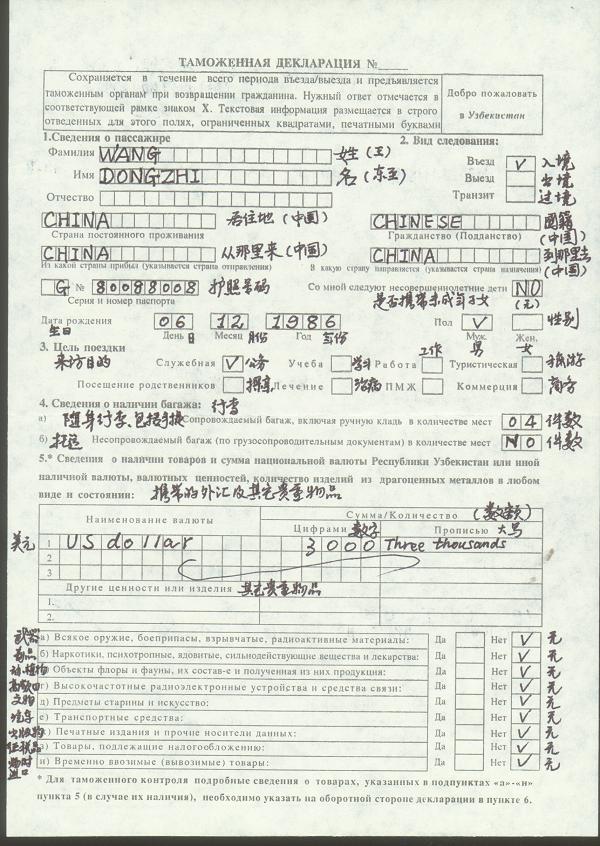 ТАМОЖЕННАЯ ДЕКЛАРАЦИЯ №____
Сохраняется в течение всего периода въезда/выезда и предъявляется
таможенным органам при возвращении гражданина. Нужный ответ отмечается в
соответствующей рамке знаком X. Текстовая информация размещается в строго
отведенных для этого полях, ограниченных квадратами, печатными буквами
Добро пожаловать
в Узбекистан
1.Сведения о пассажире
2. Вид следования:
Фамилия WANG 姓 (王)
Въезд V 入境
Имя DONGZHI 名 (东至)
Выезд 出境
Отчество
Транзит 过境
CHINA 居住地 (中国) CHINESE 国籍
Страна постоянного проживания Гражданство (Подданство) (中国)
CHINA 从那里来 (中国) CHINA 到那里去
Из какой страны прибыл (указывается страна отправления) В какую страну направляется (указывается страна назначения) (中国)
G № 80088008 护照号码 Со мной следуют несовершеннолетние дети NO
Серия и номер паспорта 是否携带未成年子女 (无)
Дата рождения 06 12 1986 Пол V 性别
生日 День 日 Месяц 月份 Год 年份 Муж. Жен.
3. Цель поездки 工作 男 女
来访目的 Служебная V 公务 Учеба 学科 Работа Туристическая 旅游
Посещение родственников 探亲 Лечение 治病 ПМЖ Коммерция 商务
4. Сведения о наличии багажа: 行李
а) 随身行李,包括手提 Сопровождаемый багаж, включая ручную кладь в количестве мест 04 件数
б) 托运 Несопровождаемый багаж (по грузосопроводительным документам) в количестве мест NO 件数
5.* Сведения о наличии товаров и сумма национальной валюты Республики Узбекистан или иной
наличной валюты, валютных ценностей, количество изделий из драгоценных металлов в любом
виде и состоянии: 携带的外汇及其它贵重物品
Наименование валюты Сумма/Количество (数额)
Цифрами 数字 Прописью 大写
美元 1 US dollar 3000 Three thousands
2
3
Другие ценности или изделия 其它贵重物品
1.
2.
武器 а) Всякое оружие, боеприпасы, взрывчатые, радиоактивные материалы: Да Нет V 无
毒品 б) Наркотики, психотропные, ядовитые, сильнодействующие вещества и лекарства: Да Нет V 无
动.植物 в) Объекты флоры и фауны, их состав-е и полученная из них продукция: Да Нет V 无
г) Высокочастотные радиоэлектронные устройства и средства связи: Да Нет V 无
文物 д) Предметы старины и искусство: Да Нет V 无
е) Транспортные средства: Да Нет V 无
出版物 ж) Печатные издания и прочие носители данных: Да Нет V 无
征税品 з) Товары, подлежащие налогообложению: Да Нет V 无
и) Временно ввозимые (вывозимые) товары: Да Нет V 无
* Для таможенного контроля подробные сведения о товарах, указанных в подпунктах «а»-«и»
пункта 5 (в случае их наличия), необходимо указать на оборотной стороне декларации в пункте 6.